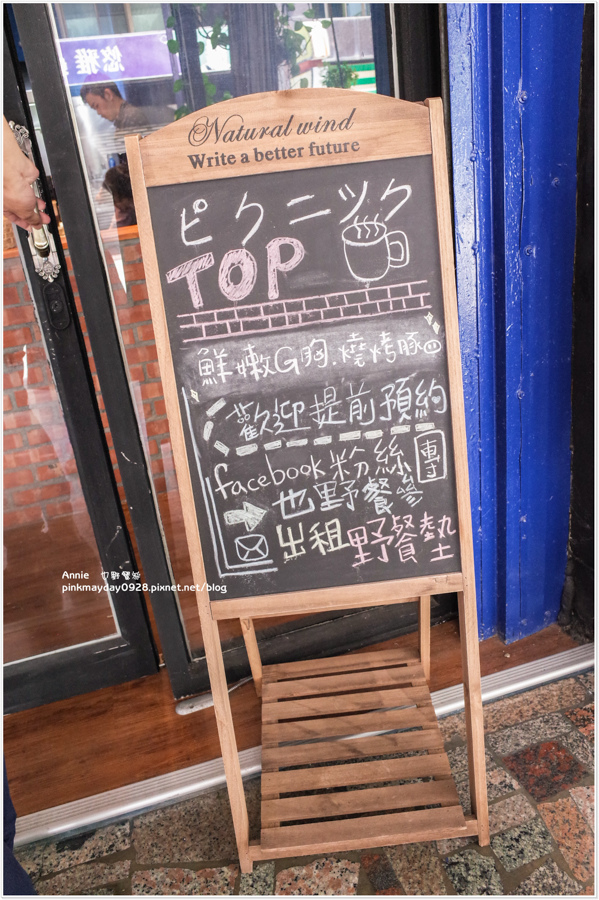 悠雅
Natural wind
Write a better future
ピクニック
TOP
鮮嫩G胸.燒烤豚
歡迎提前預約
facebook粉絲
專
也野餐參
出租野餐墊
Annie
pinkmayday0928.pixnet.net/blog